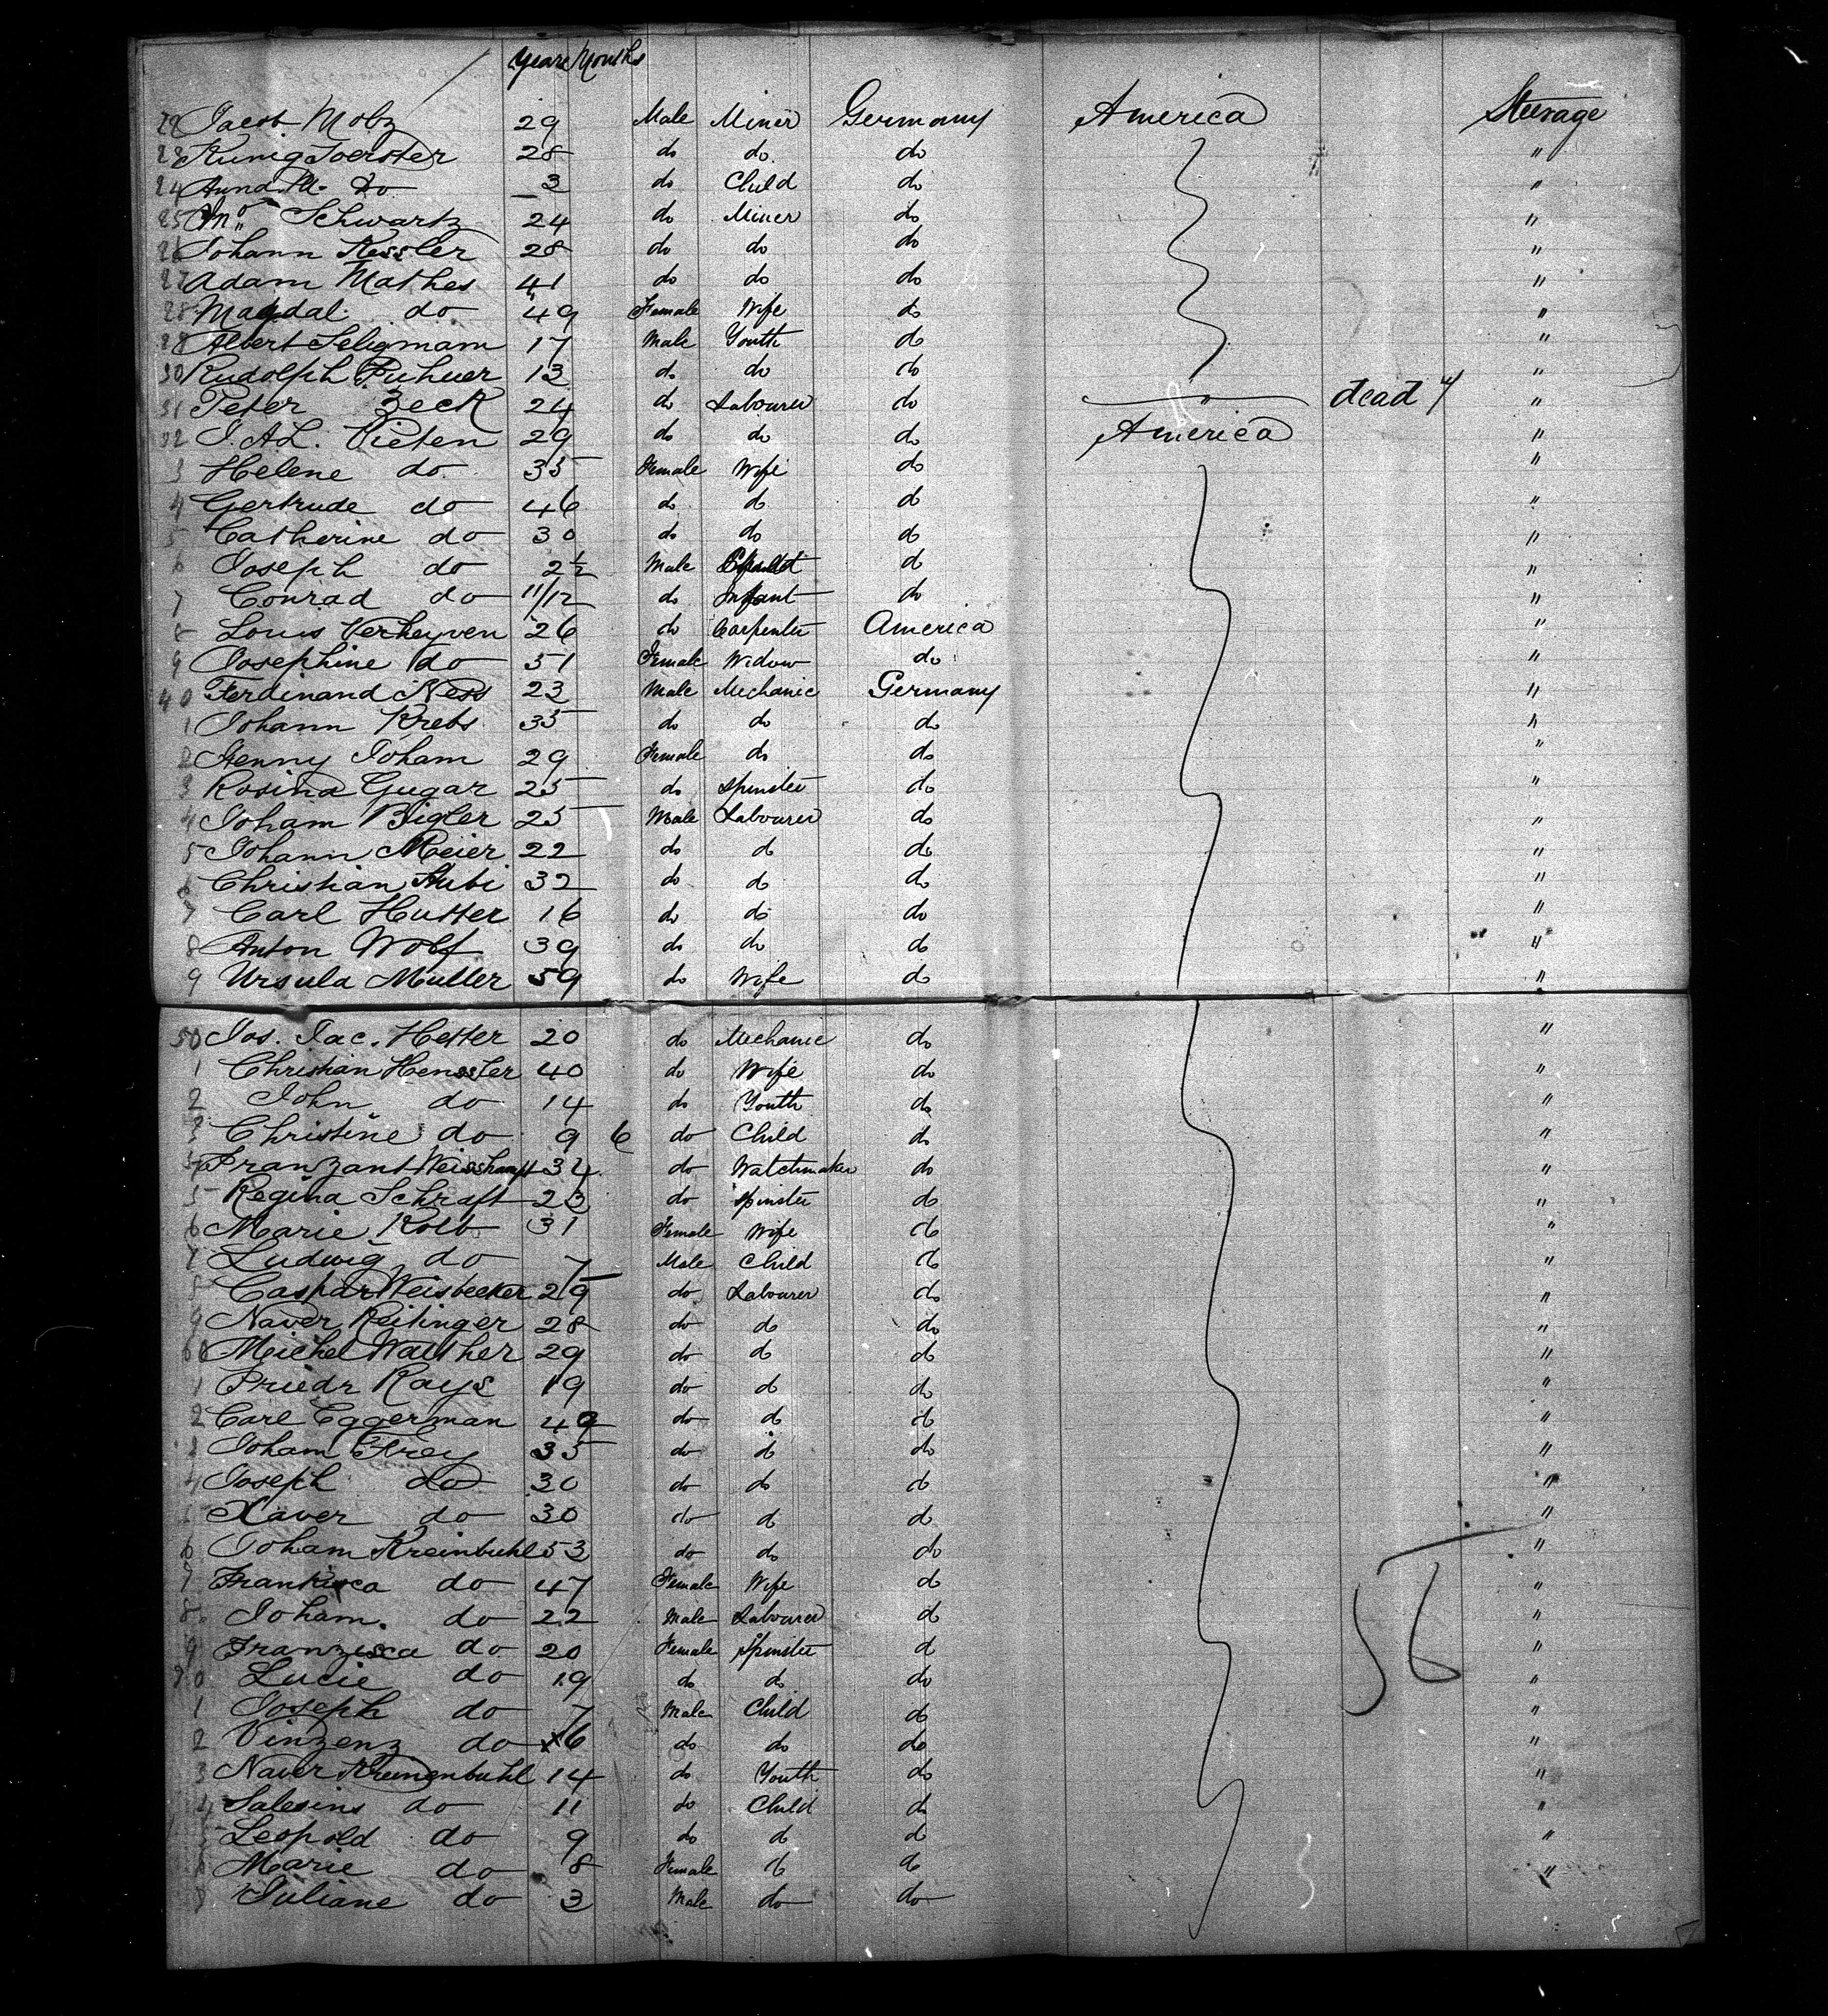 Years Months
22 Jacob Motz 29 Male Miner Germany America Steerage
23 Kunig Joerster 28 do do do "
24 Anna M. do 3 do Child do "
25 Schwartz 24 do Miner do "
26 Johann Kessler 28 do do do "
27 Adam Mathes 41 do do do "
28 Magdal. do 49 Female Wife do "
29 Albert Seligmam 17 Male Youth do "
30 Rudolph Puhuer 13 do do do "
31 Peter Beck 24 do Labourer do " dead "
32 J. A. L. Vieten 29 do do do America "
3 Helene do 35 Female Wife do "
4 Gertrude do 46 do do do "
5 Catherine do 30 do do do "
6 Joseph do 2½ Male do "
7 Conrad do 11/12 do Infant do "
8 Louis Verheyven 26 do Carpenter America "
9 Josephine do 51 Female Widow do "
40 Ferdinand Ness 23 Male Mechanic Germany "
1 Johann Krebs 35 do do do "
2 Jenny Joham 29 Female do do "
3 Rosina Gugar 25 do Spinster do "
4 Joham Bigler 25 Male Labourer do "
5 Johann Meier 22 do do do "
6 Christian Aubi 32 do do do "
7 Carl Hutter 16 do do do "
8 Anton Wolf 39 do do do "
9 Ursula Muller 59 do Wife do "
50 Jos. Jac. Hetter 20 do Mechanic do "
1 Christian Hensster 40 do Wife do "
2 John do 14 do Youth do "
3 Christine do 9 6 do Child do "
4 Franz ant Weisshaupt 32 do Watchmaker do "
5 Regina Schraft 23 do Spinster do "
6 Marie Kolb 31 Female Wife do "
7 Ludwig do 7 Male Child do "
8 Caspar Weisbecker 29 do Labourer do "
9 Naver Reitinger 28 do do do "
60 Michel Walther 29 do do do "
1 Friedr Kays 19 do do do "
2 Carl Eggerman 49 do do do "
3 Joham Frey 35 do do do "
4 Joseph do 30 do do do "
5 Xaver do 30 do do do "
6 Joham Kreinbuhl 53 do do do "
7 Franzisca do 47 Female Wife do "
8 Joham. do 22 Male Labourer do "
9 Franzisca do 20 Female Spinster do "
70 Lucie do 19 do do do "
1 Joseph do 7 Male Child do "
2 Vinzenz do 6 do do do "
3 Naver Kreinenbuhl 14 do Youth do "
4 Salesins do 11 do Child do "
5 Leopold do 9 do do do "
6 Marie do 8 Female do do "
Juliane do 3 Male do do
56